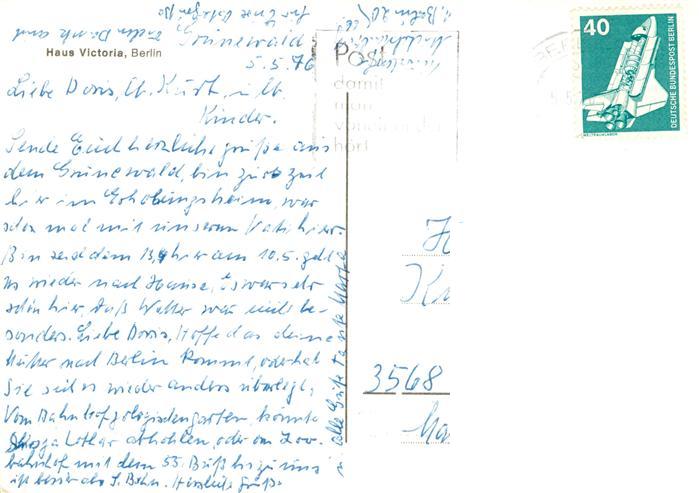 Haus Victoria, Berlin
Grunewald
5.5.76
Liebe Doris, lb. Kurt, u. lb.
Kinder.
Sende Euch herzliche Grüße aus
dem Grunewald, bin zur Zeit
hier im Erholungsheim, war
schon mal mit unserem Vati hier.
Bin seid dem hier am 10.5. geht
es wieder nach Hause, Es war sehr
schön hier, das Wetter war nicht be-
sonders. Liebe Doris, Hoffe das deine
Mutter nach Berlin kommt, oder hat
Sie seit es wieder anders überlegt,
Vom Bahnhof zologischengarten, könnte
Lothar abholen, oder am Zoo-
bahnhof mit dem 55. Buß bis zu uns
ist besser als S. Bahn. Herzliche Grüße
alle Gute Tante
Post
damit
man
voneinander
hört
40
DEUTSCHE BUNDESPOST BERLIN
WELTRAUMLABOR
3568